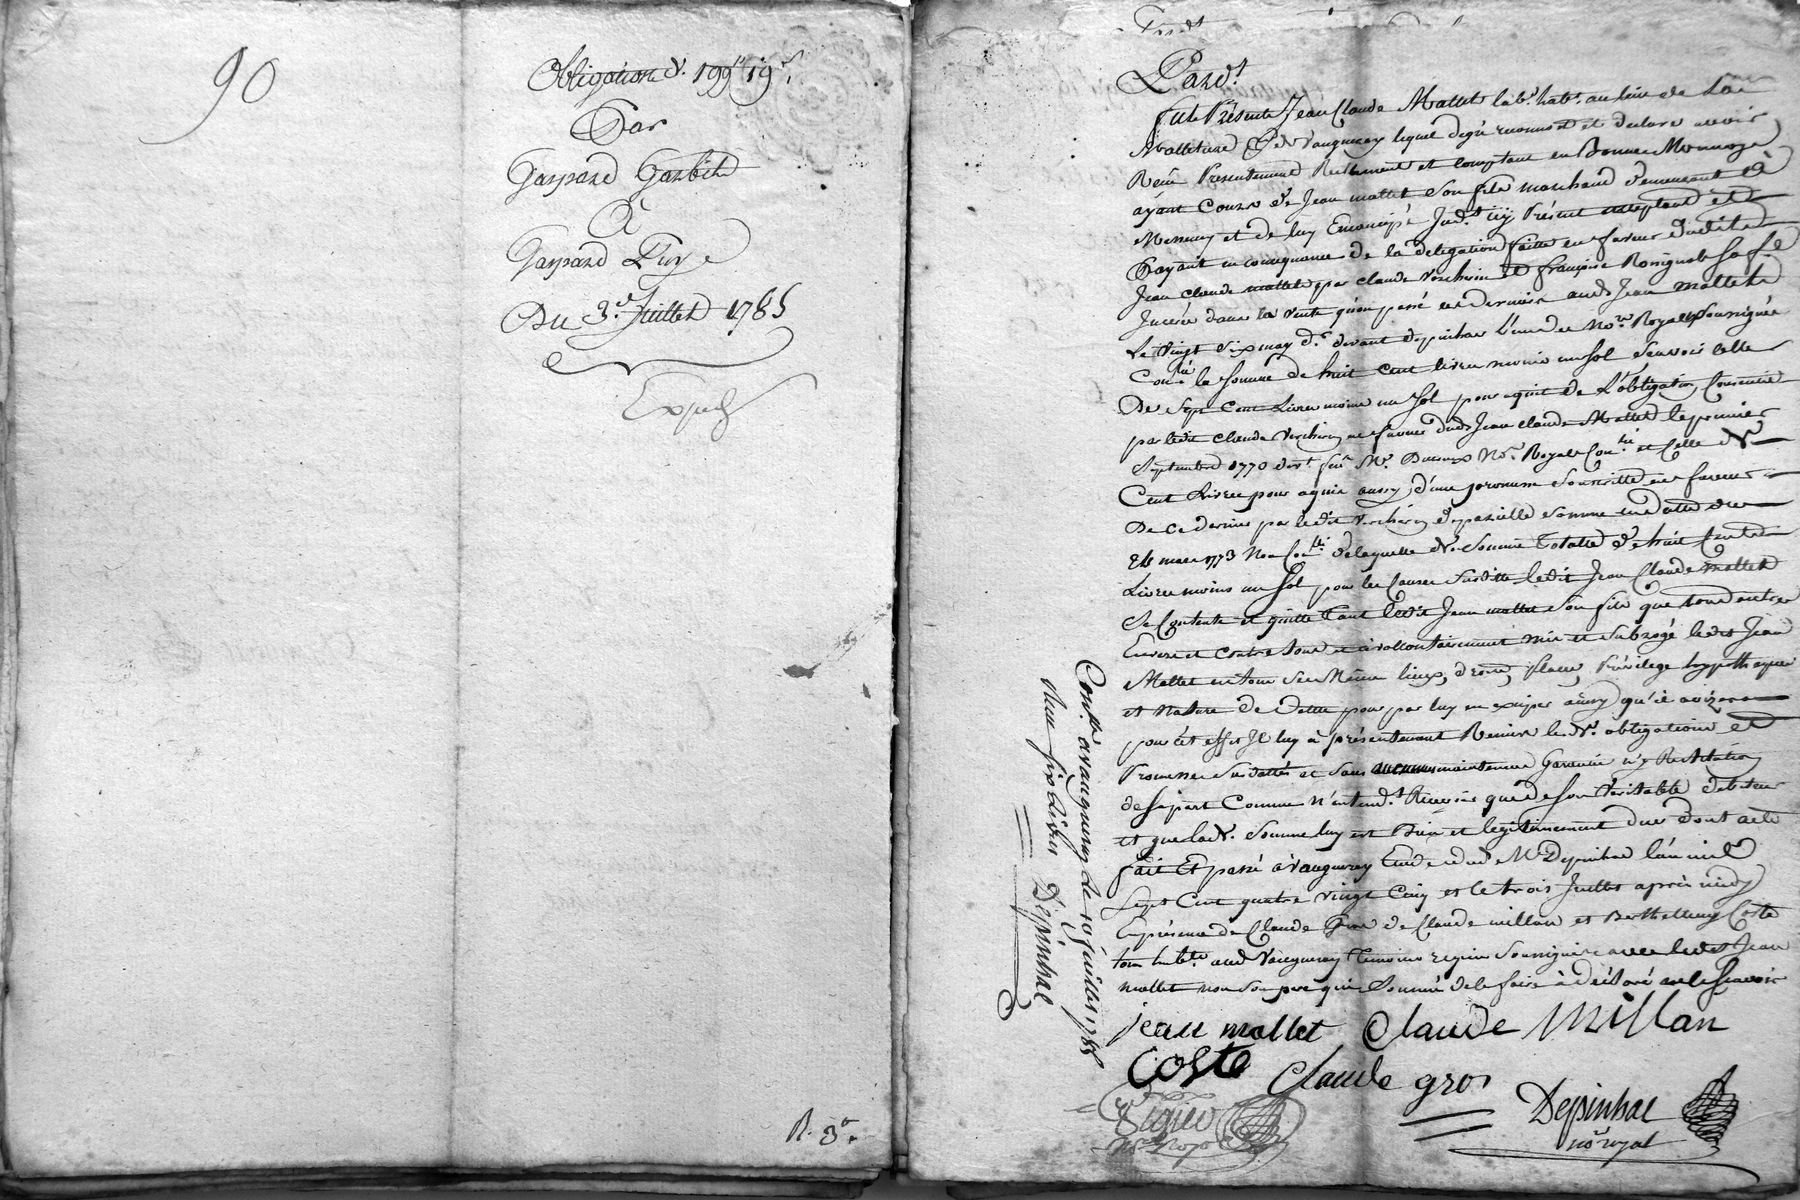 90
Obligation d. 199ll 19s.
Par
Gaspard
A
Gaspard
Du 3e. Juillet 1785
Exped
R. 3e.
Pard.t
fut Présent Jean Claude Mallet lab.r hab.t au lieu de La
P.sse de Vaugneray lequel de gré reconnoit et declare avoir
Reçu Presentement Reellement et comptant en Bonne Monnoye
ayant Cours de Jean mallet son fils marchand demeurant à
Messimy et de luy Emancipé Jud.t icy Présent acceptant et
Payant en consequance de la delegation faitte en faveur dudit
Jean claude mallet par claude Vercherin et françoise Rossignol sa f.e
Inserée dans la vente qu'on passé ces derniers aud. Jean mallet
Le vingt six may d.r devant Depinhac L'un des No.res Royaux soussignés
Con.lé la somme de huit cent livres moins un sol scavoir celle
De sept cent Livres moins un sol pour aquit de l'obligation Consentie
par ledit claude Vercherin en faveur dud. Jean claude Mallet le premier
Septembre 1770 dev.t feu M.e No.re Royal Con.lé et Celle de
Cent Livres pour aquit aussy d'une promesse souscritte en faveur
De ce dernier par ledit Vercherin de pareille somme en datte du
mars 1773 Non Con.lé de laquelle d. somme Totalle de huit Cent
Livres moins un sol pour les Causes susditte ledit Jean Claude mallet
Se Contente et quitte tant ledit Jean mallet son fils que tous autres
Envers et contre tous et à vollontairement mis et subrogé ledit Jean
Mallet en tous ses Même lieux, droits, place, Privilege hyppotheques
et Nature de dette pour par luy en exciper ainsy qu'il avisera
pour cet effet Il luy à présentement Remis les d. obligations et
Promesse susdattés et sans maintenue Garantie n'y Restitution
de sa part Comme n'entend.t Recevoir que de son Veritable debiteur
et que lad. somme luy est Bien et legitimement due dont acte
fait Et passé à Vaugneray Etude dud. M.e Depinhac l'an mil
Sept Cent quatre vingt Cinq et le trois Juillet après midy
En présence de Claude Gros de Claude millan et Berthellemy Coste
tous hab.ts aud. Vaugneray temoins requis Soussignés avec ledit Jean
mallet non son pere qui sommé de le faire à déclaré ne le scavoir
jean mallet Claude Millan
Coste Claude gros
Depinhac
no.re royal
No.re roya
Con.lé à Vaugneray le 10 juillet 1785
Reçu six livres Depinhac